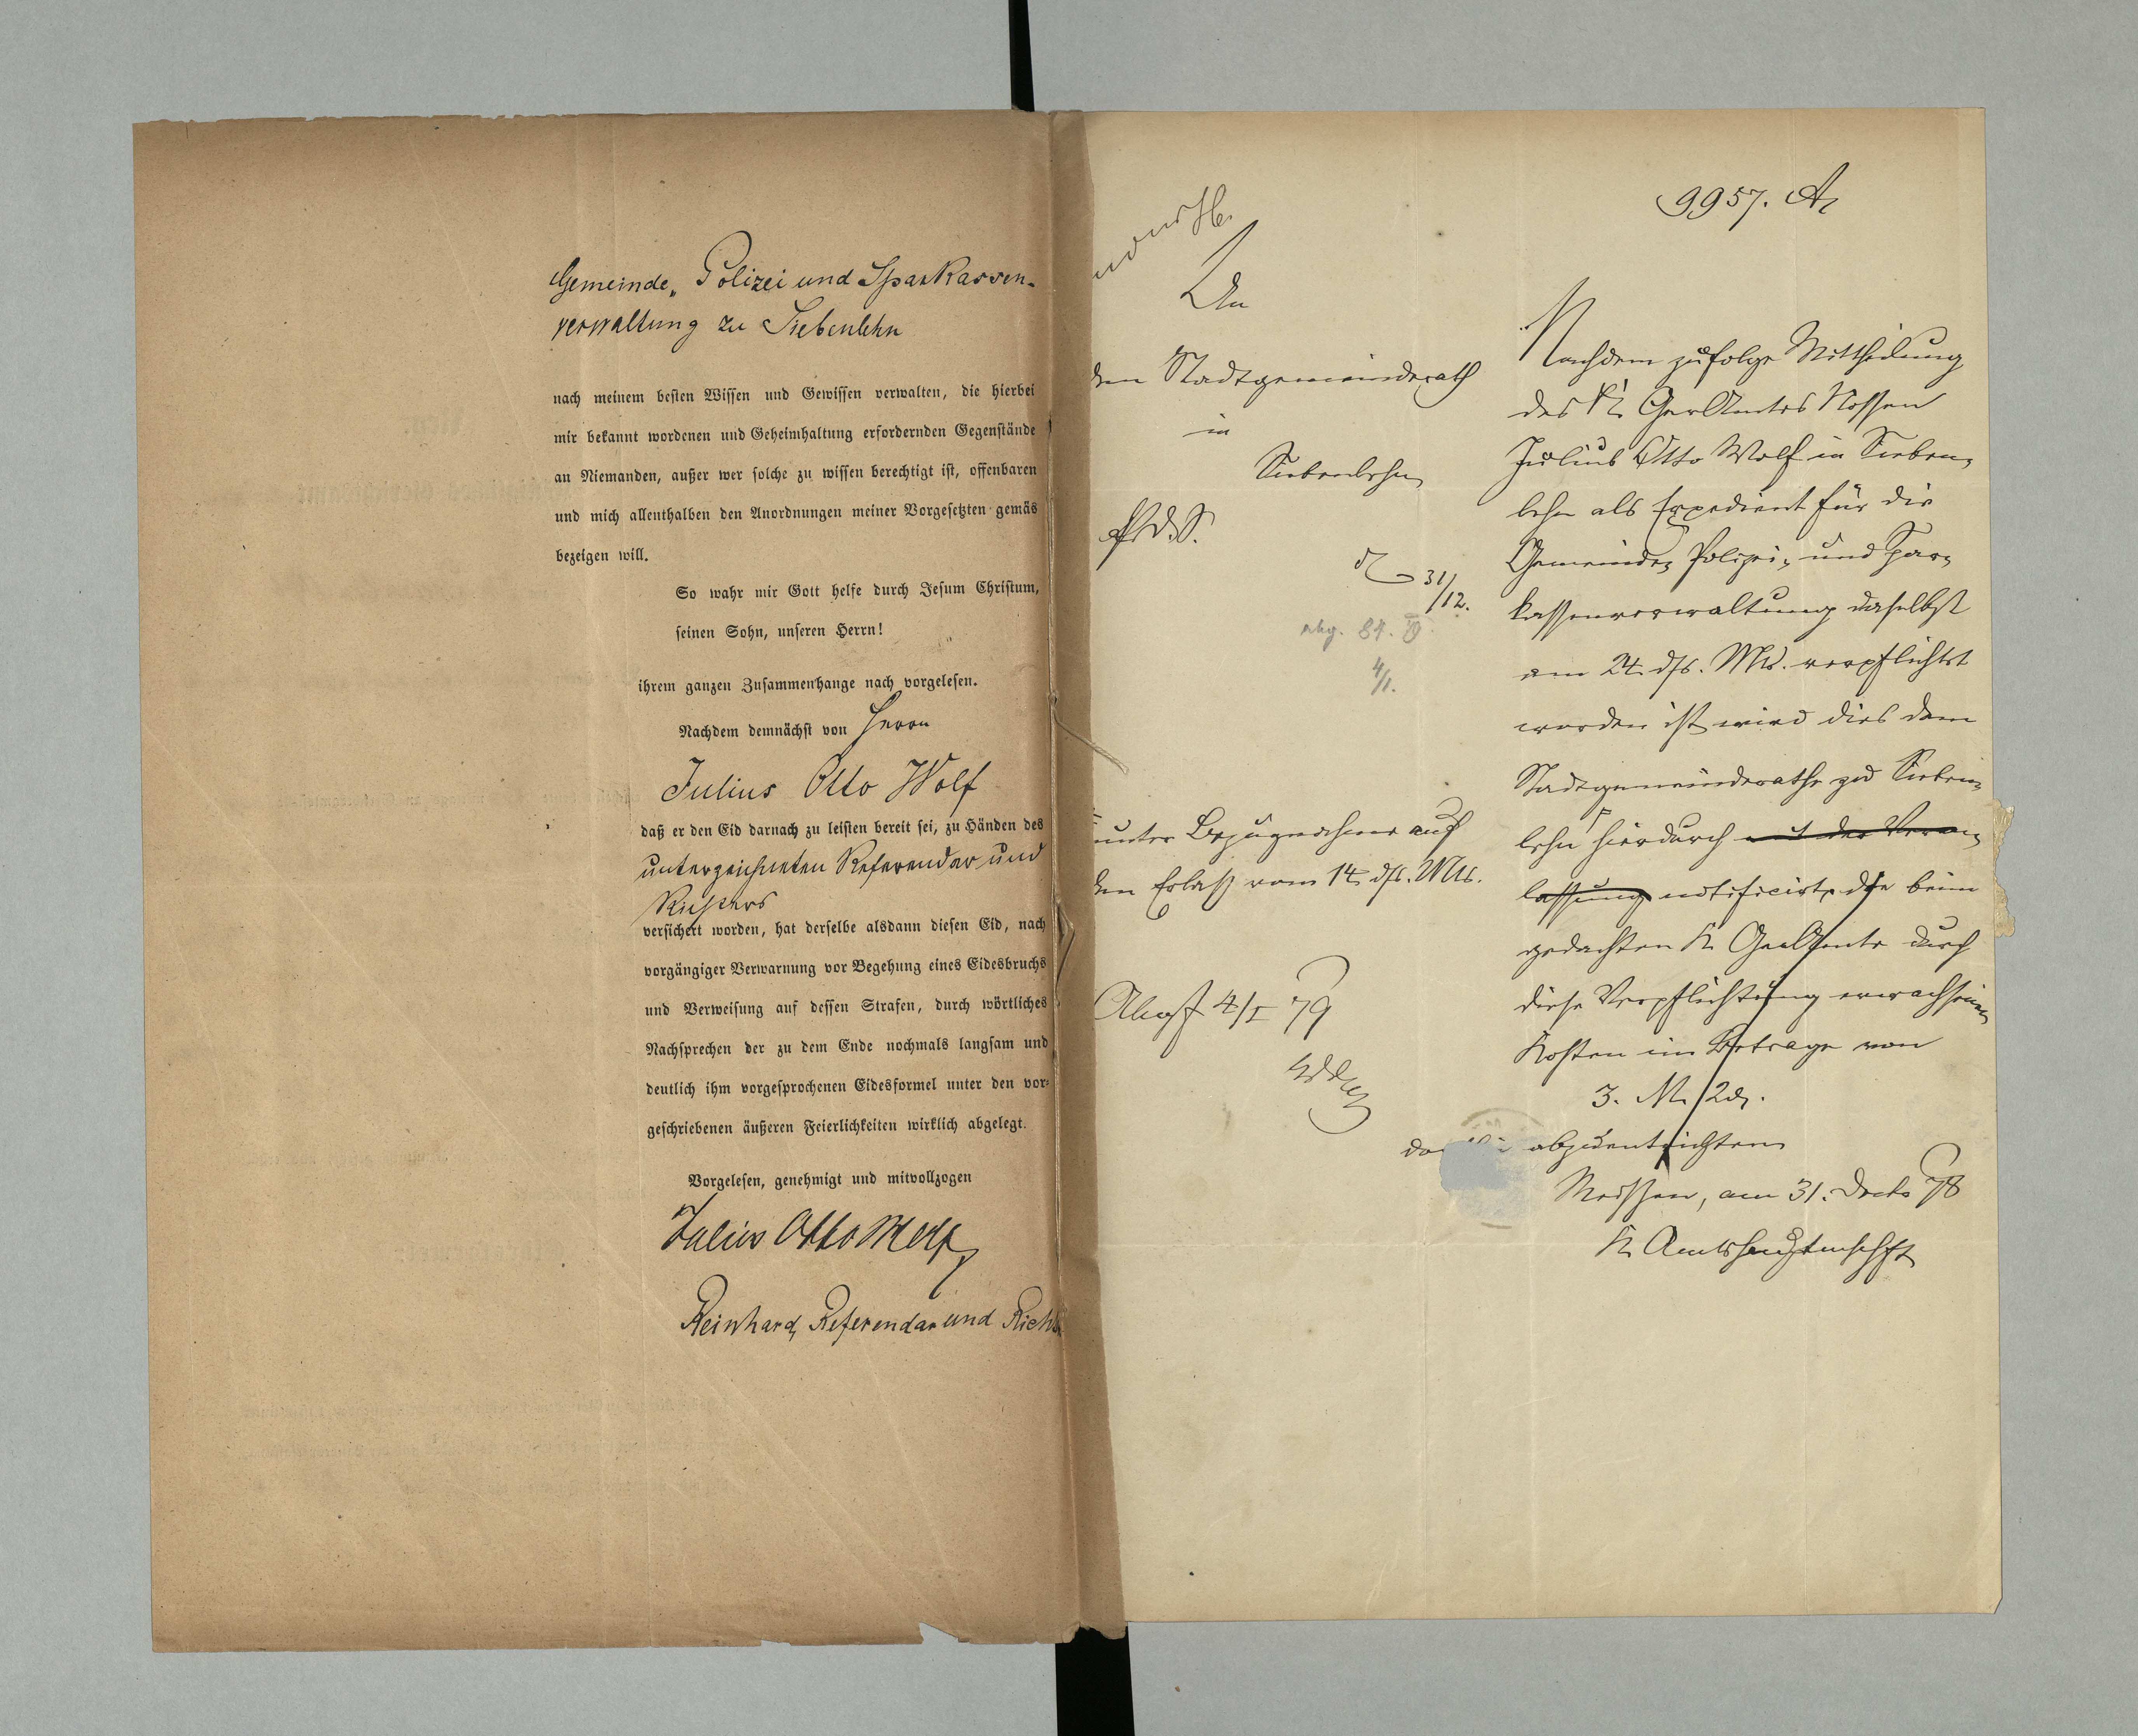 Gemeinde, Polizei und Sparkassen-
verwaltung zu Siebenlehn
nach meinem besten Wissen und Gewissen verwalten, die hierbei
mir bekannt wordenen und Geheimhaltung erfordernden Gegenstände
an Niemanden, außer wer solche zu wissen berechtigt ist, offenbaren
und mich allenthalben den Anordnungen meiner Vorgesetzten gemäs
bezeigen will.
So wahr mir Gott helfe durch Jesum Christum,
seinen Sohn, unseren Herrn!
ihrem ganzen Zusammenhange nach vorgelesen.
Nachdem demnächst von Herrn
Julius Otto Wolf
daß er den Eid darnach zu leisten bereit sei, zu Händen des
unterzeichneten Referendar und
Richters
versichert worden, hat derselbe alsdann diesen Eid, nach
vorgängiger Verwarnung vor Begehung eines Eidesbruchs
und Verweisung auf dessen Strafen, durch wörtliches
Nachsprechen der zu dem Ende nochmals langsam und
deutlich ihm vorgesprochenen Eidesformel unter den vor-
geschriebenen äußeren Feierlichkeiten wirklich abgelegt.
Vorgelesen, genehmigt und mitvollzogen
Julius Otto Wolf
Reinhard, Referendar und Richt
9957. A
An
den Stadtgemeinderath
in
Siebenlehn
31/12.
abg. 84.
4/1.
unter Bezugnahme auf
den Erlaß vom 14. dss. Mts.
4/I 79
Nachdem zufolge Mittheilung
des K. GerAmtes Nossen
Julius Otto Wolf in Sieben-
lehn als Expedient für die
Gemeinde- Polizei- und Spar-
kassenverwaltung daselbst
am 24. dss. Mts. verpflichtet
worden ist wird dies dem
Stadtgemeinderathe zu Sieben-
lehn hierdurch mit der Veran-
lassung notificirt, die beim
gedachten K. GerAmte durch
diese Verpflichtung erwachsenen
Kosten im Betrage von
3. M. 2
abzuentrichten
Meißen, am 31. Decbr 78
K. Amtshauptmschft